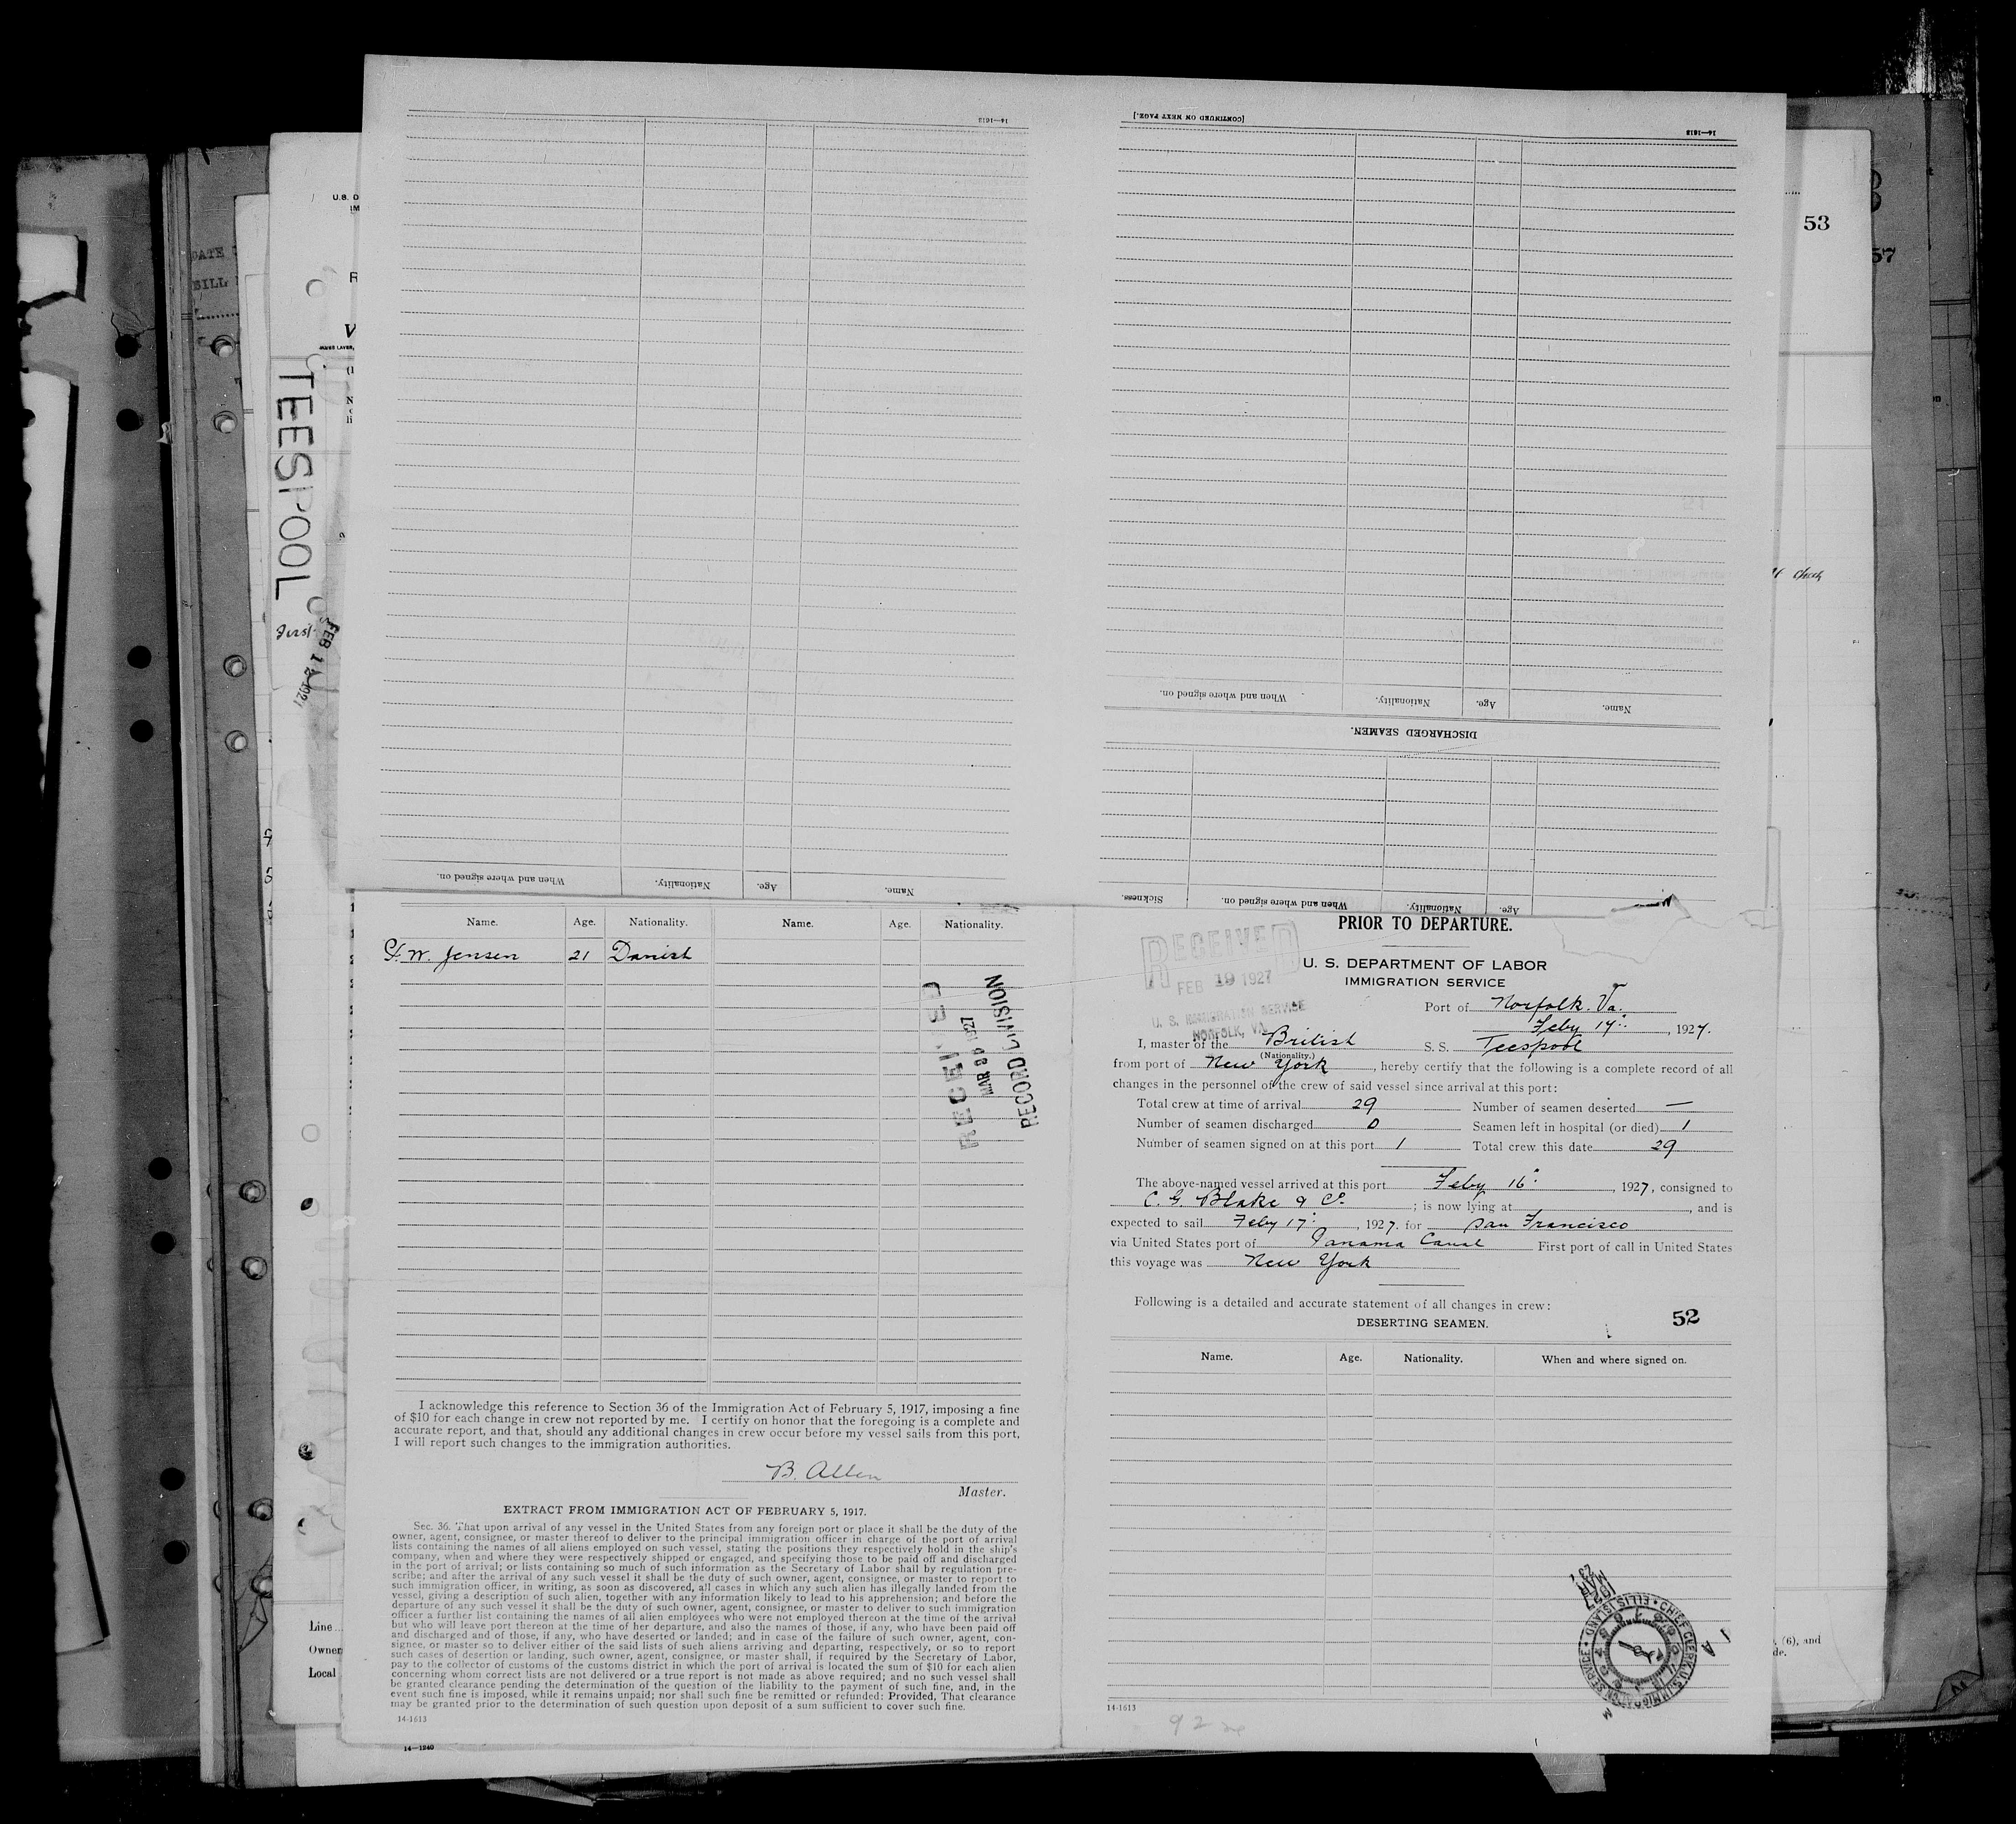 14—1613
[CONTINUED ON NEXT PAGE.]
14—1613
53
57
TEESPOOL
When and where signed on.
Nationality.
Age.
Name.
DISCHARGED SEAMEN.
When and where signed on.
Nationality.
Age.
Name.
Sickness.
When and where signed on.
Nationality.
Age.
Name. Age. Nationality. Name. Age. Nationality.
W. Jensen 21 Danish
RECORD DIVISION
I acknowledge this reference to Section 36 of the Immigration Act of February 5, 1917, imposing a fine
of $10 for each change in crew not reported by me. I certify on honor that the foregoing is a complete and
accurate report, and that, should any additional changes in crew occur before my vessel sails from this port,
I will report such changes to the immigration authorities.
B. Allen
Master.
EXTRACT FROM IMMIGRATION ACT OF FEBRUARY 5, 1917.
Sec. 36. That upon arrival of any vessel in the United States from any foreign port or place it shall be the duty of the
owner, agent, consignee, or master thereof to deliver to the principal immigration officer in charge of the port of arrival
lists containing the names of all aliens employed on such vessel, stating the positions they respectively hold in the ship's
company, when and where they were respectively shipped or engaged, and specifying those to be paid off and discharged
in the port of arrival; or lists containing so much of such information as the Secretary of Labor shall by regulation pre-
scribe; and after the arrival of any such vessel it shall be the duty of such owner, agent, consignee, or master to report to
such immigration officer, in writing, as soon as discovered, all cases in which any such alien has illegally landed from the
vessel, giving a description of such alien, together with any information likely to lead to his apprehension; and before the
departure of any such vessel it shall be the duty of such owner, agent, consignee, or master to deliver to such immigration
officer a further list containing the names of all alien employees who were not employed thereon at the time of the arrival
but who will leave port thereon at the time of her departure, and also the names of those, if any, who have been paid off
and discharged and of those, if any, who have deserted or landed; and in case of the failure of such owner, agent, con-
signee, or master so to deliver either of the said lists of such aliens arriving and departing, respectively, or so to report
such cases of desertion or landing, such owner, agent, consignee, or master shall, if required by the Secretary of Labor,
pay to the collector of customs of the customs district in which the port of arrival is located the sum of $10 for each alien
concerning whom correct lists are not delivered or a true report is not made as above required; and no such vessel shall
be granted clearance pending the determination of the question of the liability to the payment of such fine, and, in the
event such fine is imposed, while it remains unpaid; nor shall such fine be remitted or refunded: Provided, That clearance
may be granted prior to the determination of such question upon deposit of a sum sufficient to cover such fine.
14-1613
14—1240
Line
Owner
Local
PRIOR TO DEPARTURE.
RECEIVED
FEB 19 1927
U. S. IMMIGRATION SERVICE
NORFOLK, VA.
U. S. DEPARTMENT OF LABOR
IMMIGRATION SERVICE
Port of Norfolk. Va.
Feby 17, 1927.
I, master of the British S. S. Teespool
(Nationality.)
from port of New York, hereby certify that the following is a complete record of all
changes in the personnel of the crew of said vessel since arrival at this port:
Total crew at time of arrival 29 Number of seamen deserted —
Number of seamen discharged 0 Seamen left in hospital (or died) 1
Number of seamen signed on at this port 1 Total crew this date 29
The above-named vessel arrived at this port Feby 16, 1927, consigned to
C. G. Blake & Co.; is now lying at , and is
expected to sail Feby 17, 1927. for San Francisco
via United States port of Panama Canal First port of call in United States
this voyage was New York
Following is a detailed and accurate statement of all changes in crew:
52
DESERTING SEAMEN.
Name. Age. Nationality. When and where signed on.
CHIEF CLERK, U.S. IMMIGRATION SERVICE • ELLIS ISLAND •
14-1613
(6), and